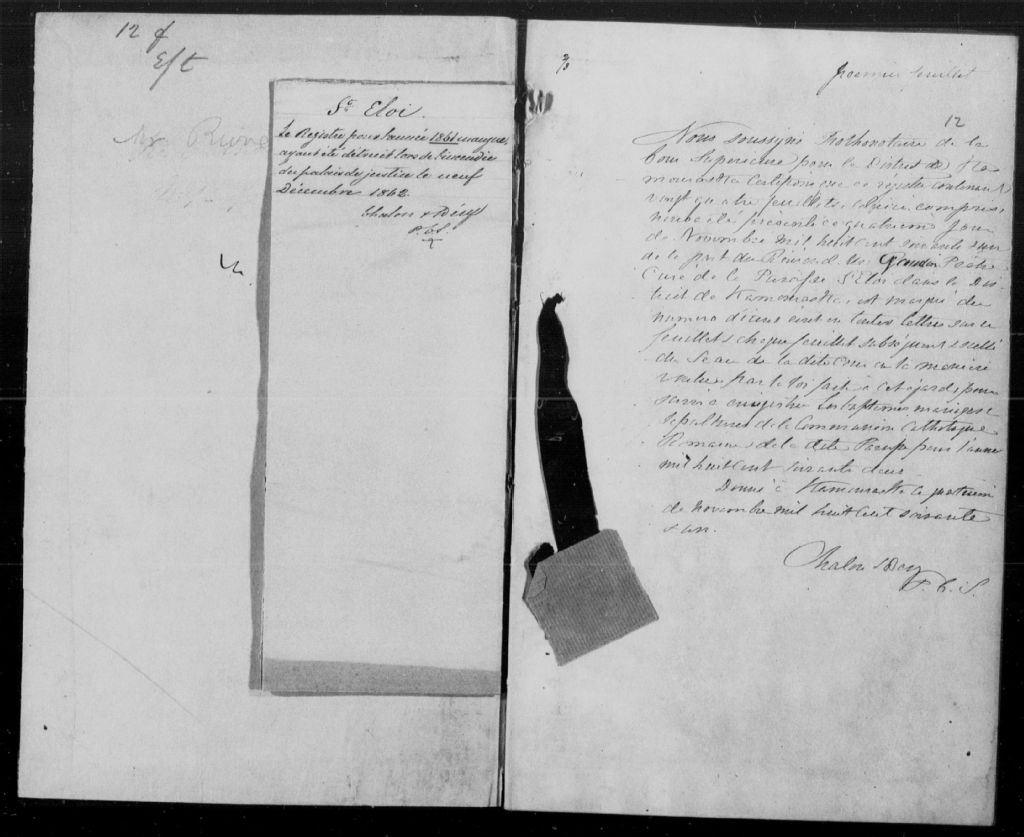 12 f
E/t
St Eloi.
Le Registre pour l'année 1861 manque,
ayant été détruit lors de l'incendie
du palais de justice le neuf
Décembre 1862.
Chalou & Déry
P.C.S.
premier feuillet
12
Nous soussigné Prothonotaire de la
Cour Superieure pour le District de Ka
mouraska Certifions que ce régistre contenant
vingt quatre feuillets, celui ci compris,
nous a été présenté ce quatrieme jour
de Novembre mil huit cent soixante & un
de la part du Révérend Mr Ptre
Curé de la Paroisse St Eloi dans le Dis
trict de Kamouraska, est marqué du
numero d'iceux écrit en toutes lettres sur ce
feuillet & chaque feuillet subséquent & scellé
du Sceau de la dite Cour en la maniere
voulue par la loi à cet égard, pour
servir à enrégistrer les baptemes mariages &
sepultures de la Communion Catholique
Romaine de la dite Paroisse pour l'année
mil huit cent soixante deux
Donné à Kamouraska ce quatrieme
de novembre mil huit cent soixante
& un.
Chalou & Dery
P. C. S.